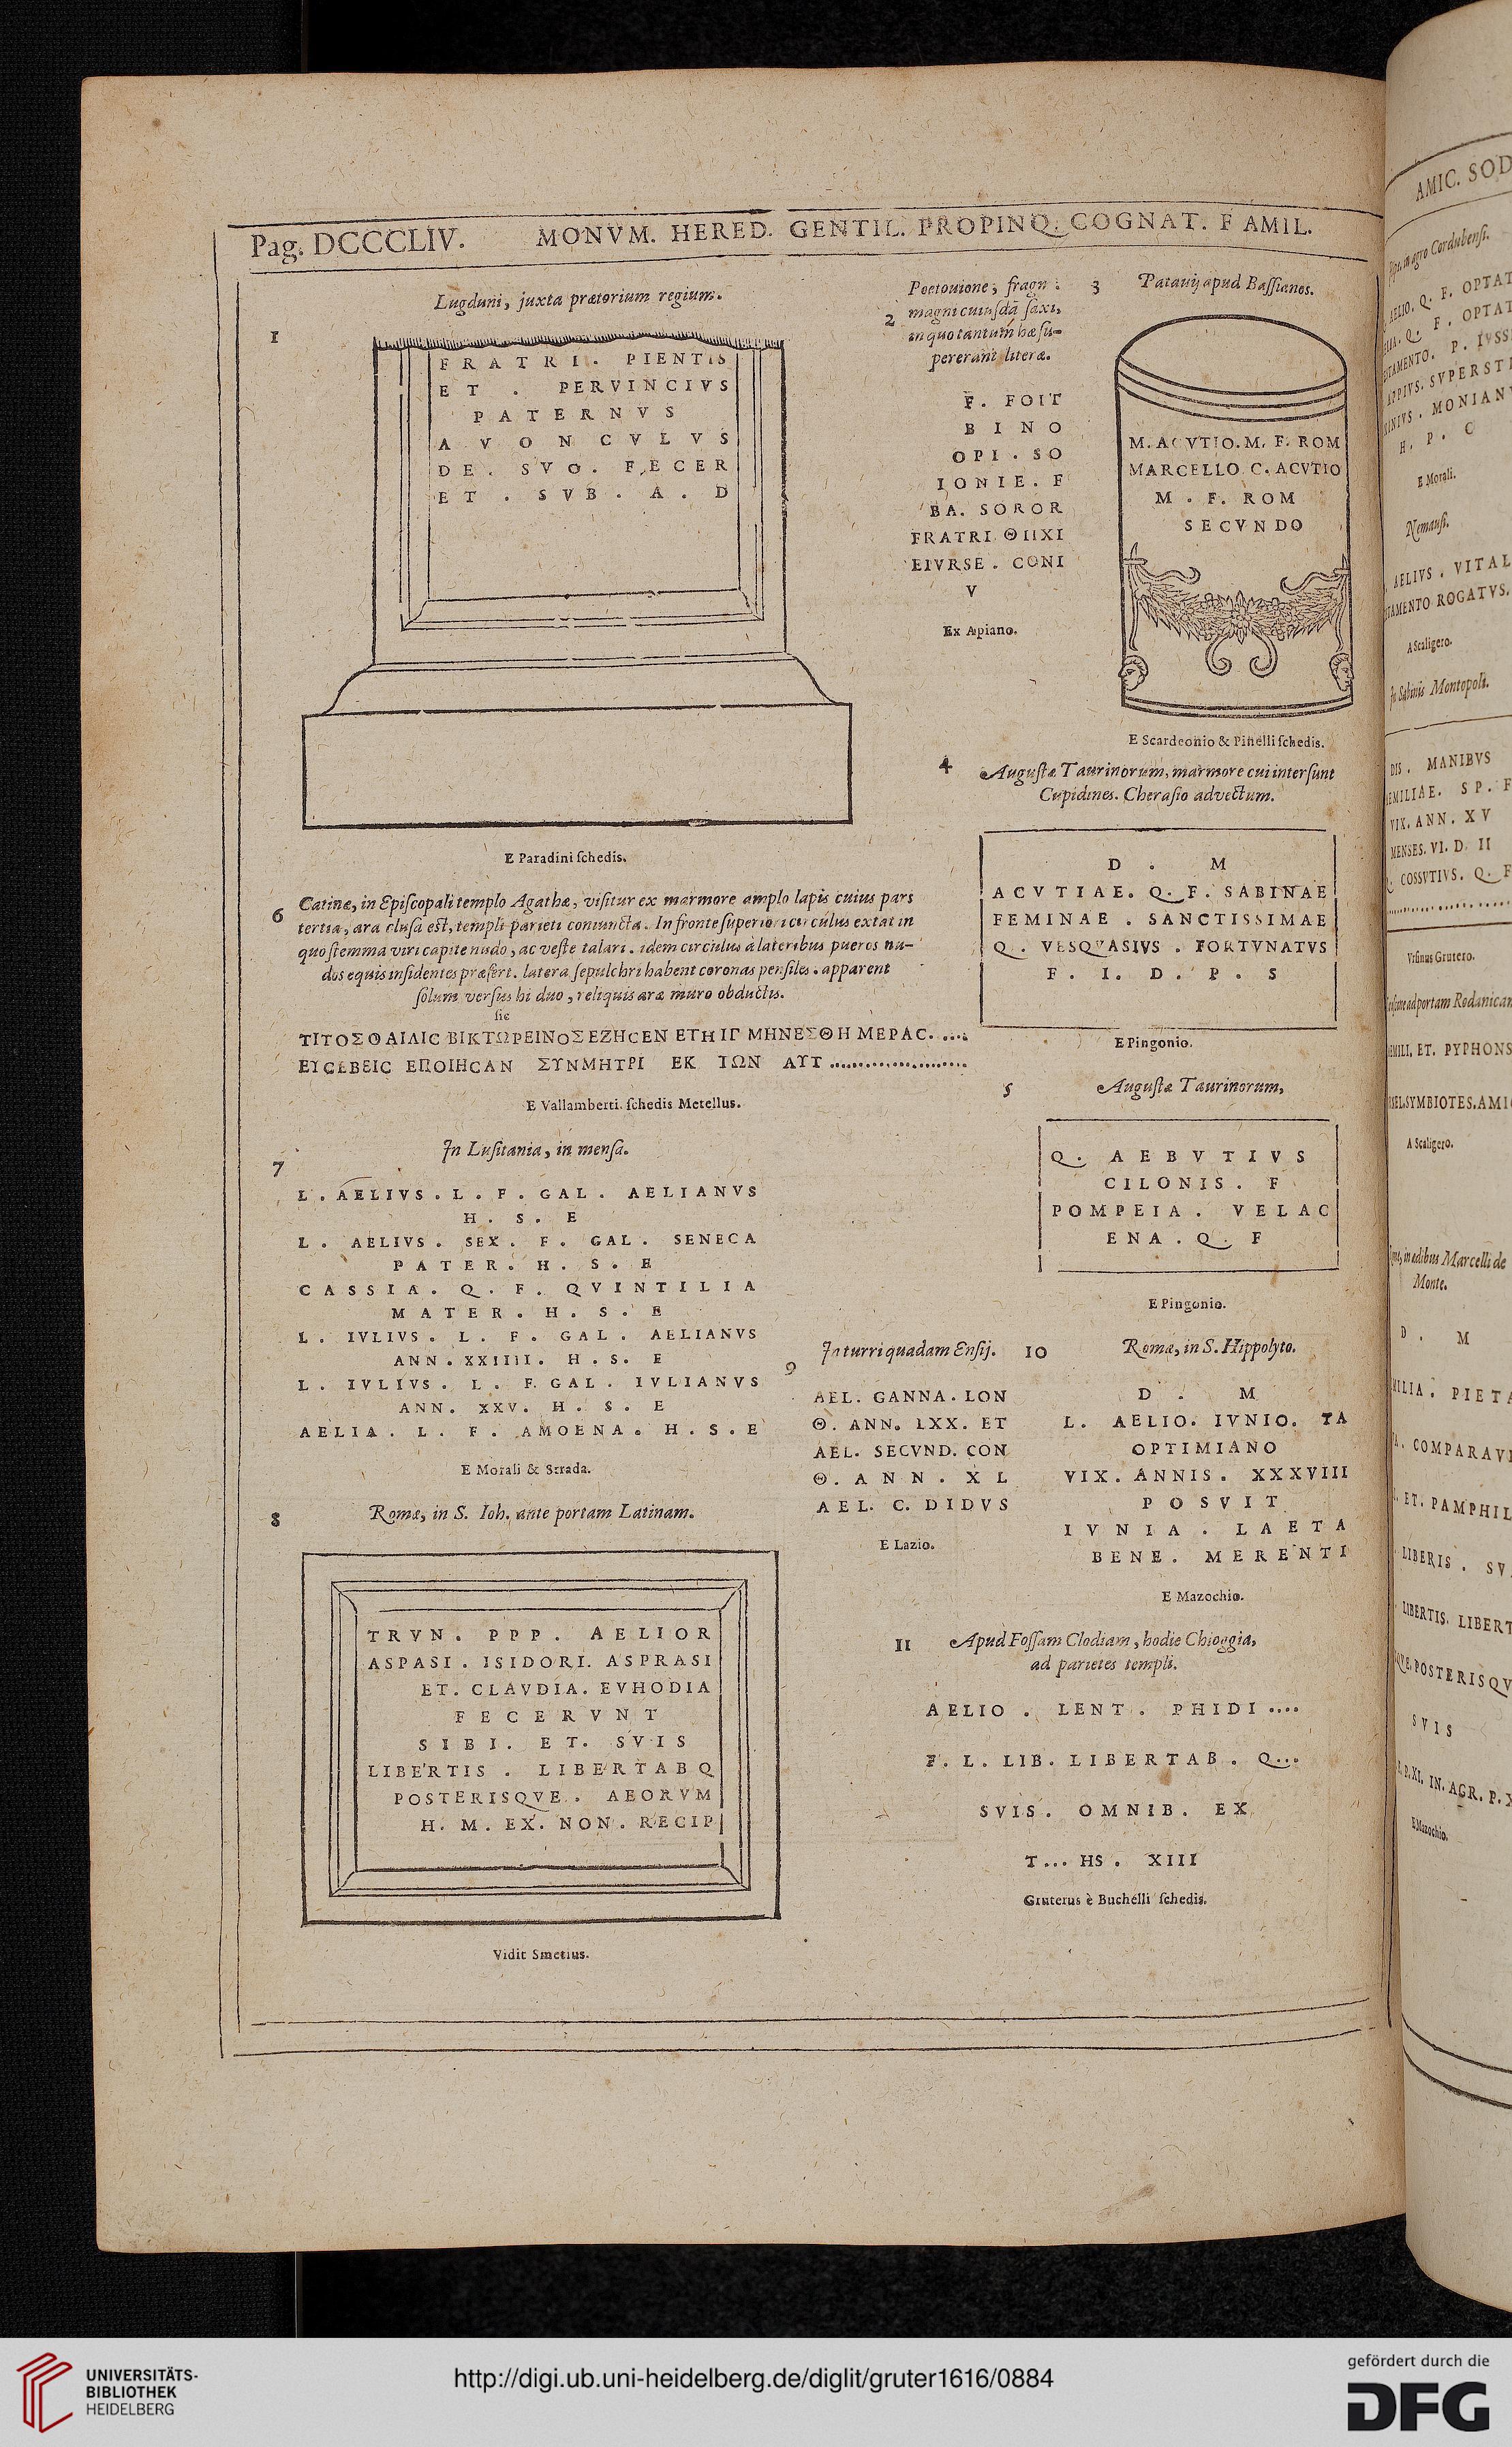 Pag. DCCCLIV. MONVM. HERED. GENTIL. PROPINQ. COGNAT. FAMIL.
Lugduni, juxta prætorium regium.
1
FRATRI. PIENTIS
ET . PERVINCIVS
PATERNVS
AVONCVLVS
DE. SVO. FECER
ET . SVB . A . D
E Paradini ſchedis.
2
Poetouione, fragm:
magni cuiuſdā ſaxi,
in quo tantum hæ ſu-
pererant literæ.
F. FOIT
BINO
OPI . SO
IONIE. F
BA. SOROR
FRATRI ΘIIXI
EIVRSE. CONI
V
Ex Apiano.
3
Patauij apud Baſſianos.
M. ACVTIO. M. F. ROM
MARCELLO. C. ACVTIO
M . F. ROM
SECVNDO
E Scardeonio & Pinelli ſchedis.
4
Auguſtæ Taurinorum, marmore cui interſunt
Cupidines. Cheraſio advectum.
D . M
ACVTIAE. Q. F. SABINAE
FEMINAE . SANCTISSIMAE
Q. VESQVASIVS . FORTVNATVS
F. I. D. P. S
E Pingonio.
5
Auguſtæ Taurinorum,
Q. AEBVTIVS
CILONIS. F
POMPEIA . VELAC
ENA . Q. F
E Pingonio.
6
Catinæ, in Epiſcopali templo Agathæ, viſitur ex marmore amplo lapis cuius pars
tertia, ara cluſa eſt, templi parieti coniuncta. In fronte ſuperiori circulus extat in
quo ſtemma viri capite nudo, ac veſte talari. idem circulus à lateribus pueros nu-
dos equis inſidentes præfert. latera ſepulchri habent coronas penſiles. apparent
ſolum verſus hi duo, reliquis aræ muro obductis.
ſic
ΤΙΤΟΣ ΘΑΙΛΙC ΒΙΚΤΩΡΕΙΝΟΣ ΕΖΗCΕΝ ΕΤΗ ΙΓ ΜΗΝΕΣ Θ ΗΜΕΡΑC.....
ΕΥCΕΒΕΙC ΕΠΟΙΗCΑΝ ΣΥΝΜΗΤΡΙ ΕΚ ΙΩΝ ΑΥΤ......................
E Vallamberti ſchedis Metellus.
7
In Luſitania, in menſa.
L . AELIVS . L . F . GAL . AELIANVS
H . S . E
L . AELIVS . SEX . F . GAL . SENECA
PATER . H . S . E
CASSIA . Q . F . QVINTILIA
MATER . H . S . E
L . IVLIVS . L . F . GAL . AELIANVS
ANN . XXIIII . H . S . E
L . IVLIVS . L . F. GAL . IVLIANVS
ANN . XXV . H . S . E
AELIA . L . F . AMOENA . H . S . E
E Morali & Strada.
8
Romæ, in S. Ioh. ante portam Latinam.
TRVN. PPP. AELIOR
ASPASI . ISIDORI. ASPRASI
ET. CLAVDIA. EVHODIA
FECERVNT
SIBI. ET. SVIS
LIBERTIS . LIBERTABQ
POSTERISQVE . AEORVM
H. M. EX. NON. RECIP
Vidit Smetius.
9
In turri quadam Enſij.
AEL. GANNA. LON
Θ. ANN. LXX. ET
AEL. SECVND. CON
Θ. ANN. XL
AEL. C. DIDVS
E Lazio.
10
Romæ, in S. Hippolyto.
D . M
L. AELIO. IVNIO. TA
OPTIMIANO
VIX. ANNIS. XXXVIII
POSVIT
IVNIA . LAETA
BENE. MERENTI
E Mazochio.
11
Apud Foſſam Clodiam, hodie Chioggia,
ad parietes templi.
AELIO . LENT . PHIDI ....
F. L. LIB. LIBERTAB. Q...
SVIS. OMNIB. EX
T... HS . XIII
Gruterus è Buchelli ſchedis.
AMIC. SOD
Cordubenſi.
AELIO. Q. F. OPTAT
Q. F. OPTAT
TAMENTO. P. IVSS
SVPERST
MONIAN
H. P. C
E Morali.
Nemauſi.
AELIVS . VITAL
TAMENTO ROGATVS.
A Scaligero.
In Sabinis Montopoli.
DIS . MANIBVS
EMILIAE. SP. F
VIX. ANN. XV
MENSES. VI. D. II
COSSVTIVS. Q. F
Vrſinus Grutero.
ad portam Rodanican
EMILI. ET. PYPHONS
SYMBIOTES. AMI
A Scaligero.
in ædibus Marcelli de
Monte.
D . M
ILIA. PIET
COMPARAV
ET. PAMPHIL
LIBERIS . SV
LIBERTIS. LIBERT
POSTERISQV
SVIS
P. XI. IN. AGR. P. X
E Mazochio.
UNIVERSITÄTS-
BIBLIOTHEK
HEIDELBERG
http://digi.ub.uni-heidelberg.de/diglit/gruter1616/0884
gefördert durch die
DFG